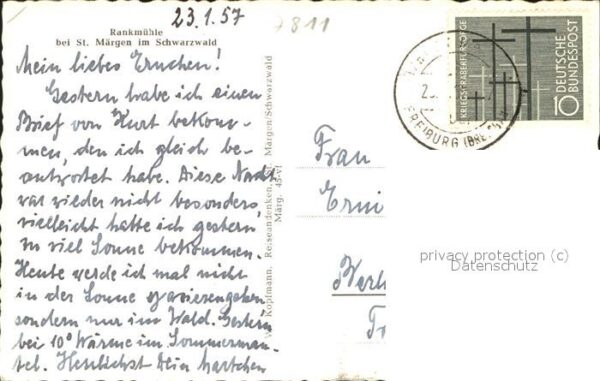 23.1.57
7811
Rankmühle
bei St. Märgen im Schwarzwald
Mein liebes Ernchen!
Gestern habe ich einen
Brief von Kurt bekom-
men, den ich gleich be-
antwortet habe. Diese Nacht
war wieder nicht besonders,
vielleicht hatte ich gestern
zu viel Sonne bekommen.
Heute werde ich mal nicht
in der Sonne spazierengehen
sondern nur im Wald. Gestern
bei 10° Wärme im Sommerman-
tel. Herzlichst Dein
Kopfmann, Reiseandenken, St. Märgen/Schwarzwald
Märg. 45-vi
KRIEGSGRÄBERFÜRSORGE
DEUTSCHE
BUNDESPOST
10
FREIBURG
Frau
Erni
Berl
privacy protection (c)
Datenschutz